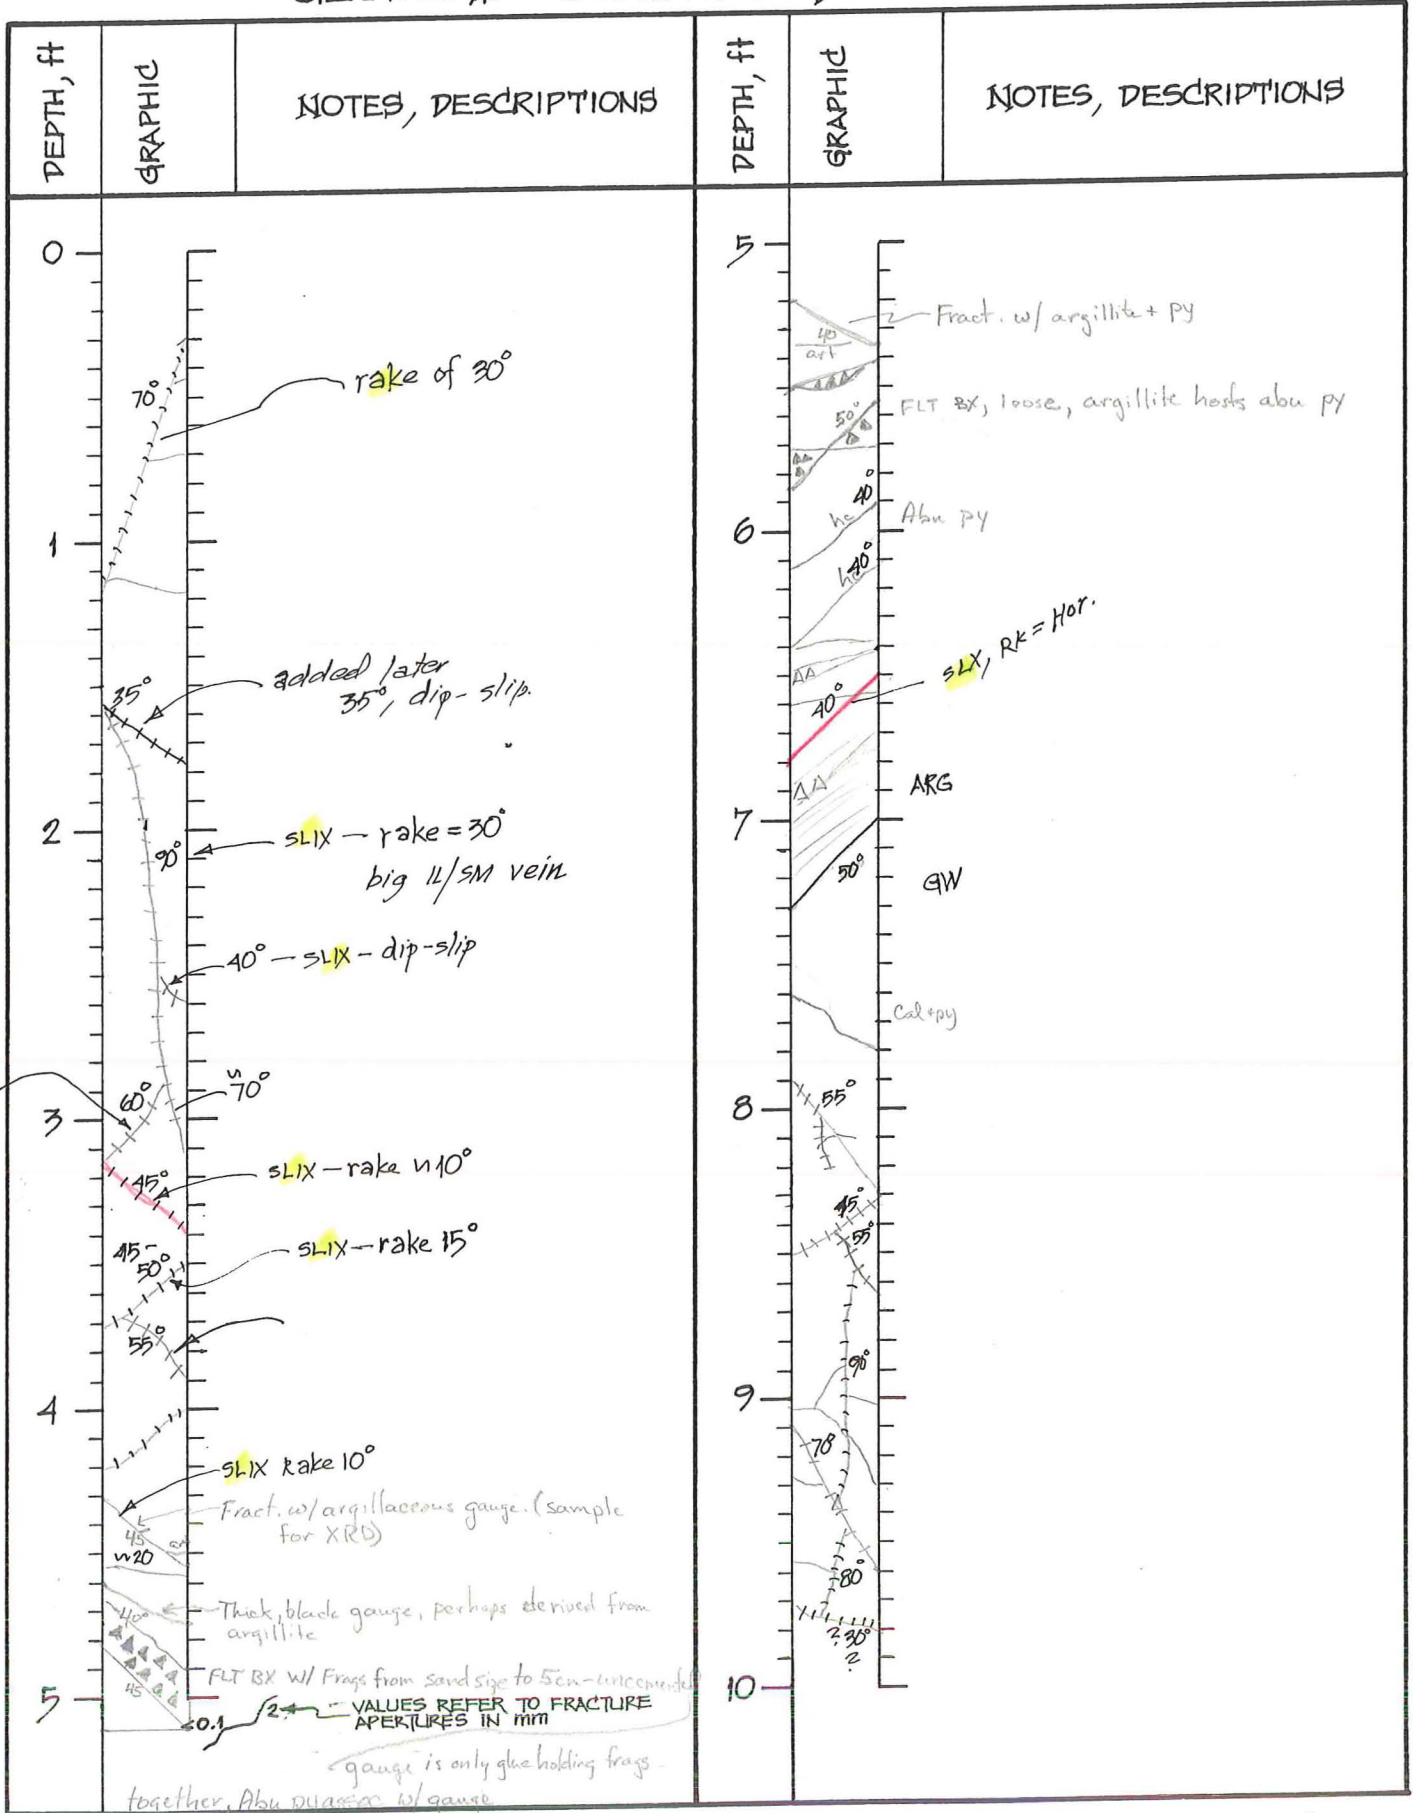 DEPTH, ft
GRAPHIC
NOTES, DESCRIPTIONS
0
70°
rake of 30°
1
35°
added later
35°, dip-slip.
2
90°
SLIX — rake = 30°
big IL/SM vein
40° — SLIX — dip-slip
60°
~70°
3
45°
SLIX — rake ~10°
45-
50°
SLIX — rake 15°
55°
4
SLIX Rake 10°
Fract. w/ argillaceous gauge. (sample
for XRD)
45
~20
40°
Thick, black gauge, perhaps derived from
argillite
FLT BX W/ Frags from sand size to 5cm-uncemented
45
5
<0.1
2
VALUES REFER TO FRACTURE
APERTURES IN mm
gauge is only glue holding frags
together. Abu py assoc w/ gauge
DEPTH, ft
GRAPHIC
NOTES, DESCRIPTIONS
5
Fract. w/ argillite + py
40
art
FLT BX, loose, argillite hosts abu py
50°
40°
hc
Abu py
6
40°
hc
SLX, RK = Hor.
40°
ARG
7
50°
GW
Cal+py
8
55°
45°
55°
90°
9
70°
80°
?30°
?
10